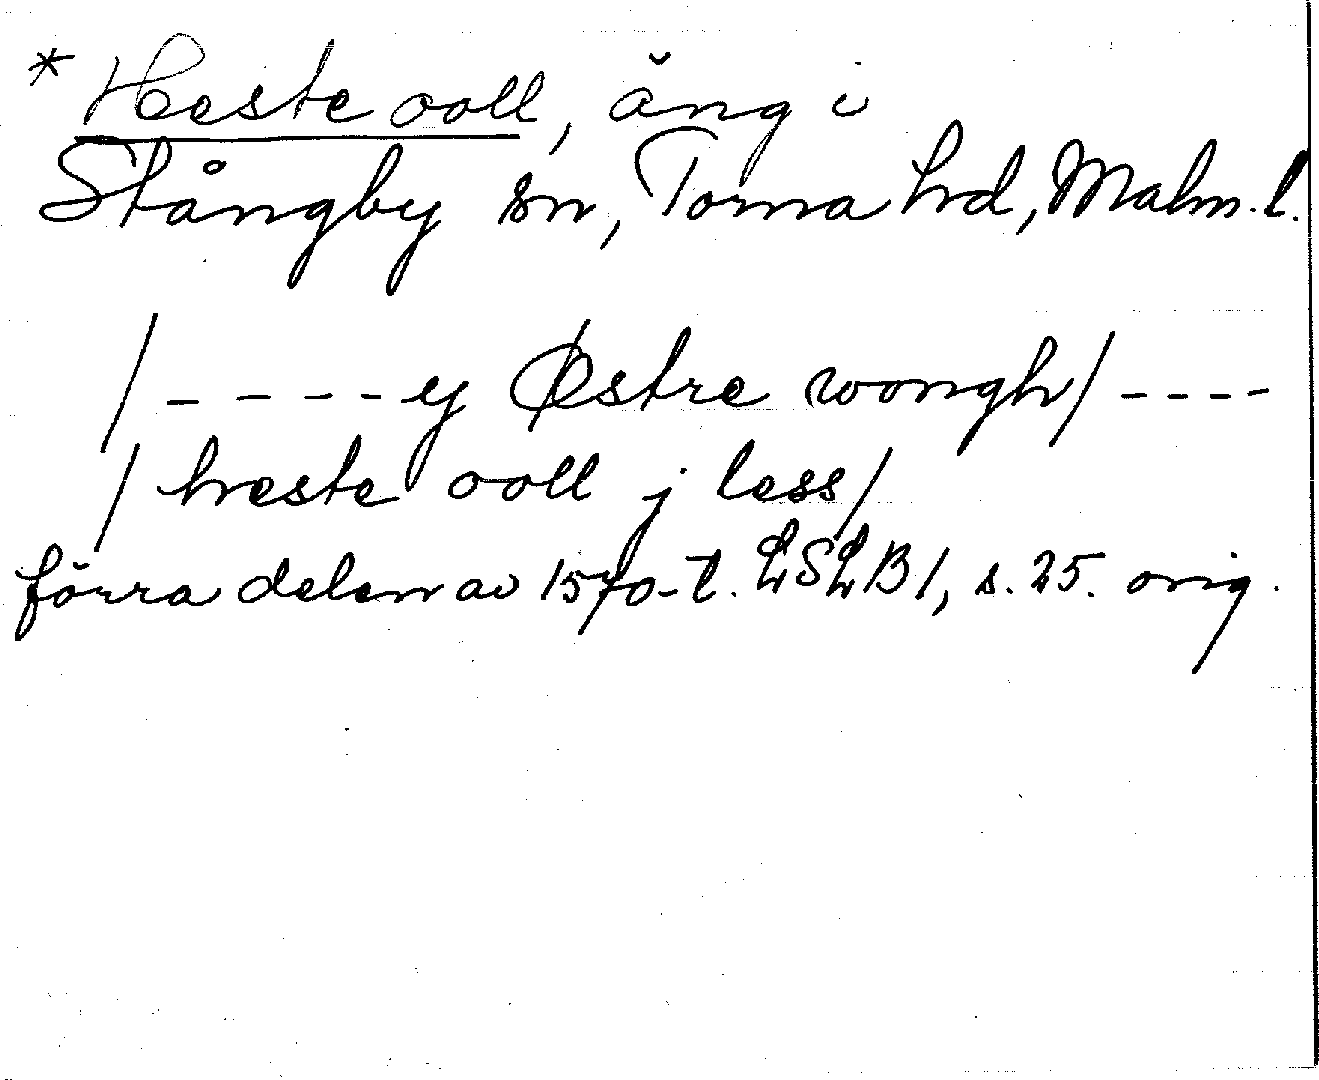 * Heste ooll, äng i
Stångby sn, Torna hrd, Malm. l.
/ - - - - ey Østre wongh / - - - -
/ heste ooll j less /
förra delen av 1570-t. LSLB 1, s. 25. orig.